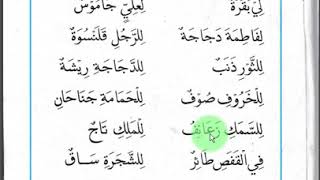 لِي بَقَرَةٌ لِعَلِيٍّ جَامُوْسٌ
لِفَاطِمَةَ دَجَاجَةٌ لِلرَّجُلِ قَلَنْسُوَةٌ
لِلثَّوْرِ ذَنَبٌ لِلدَّجَاجَةِ رِيْشَةٌ
لِلْخَرُوْفِ صُوْفٌ لِلْحَمَامَةِ جَنَاحَانِ
لِلسَّمَكِ زَعَانِفُ لِلْمَلِكِ تَاجٌ
فِي الْقَفَصِ طَائِرٌ لِلشَّجَرَةِ سَاقٌ